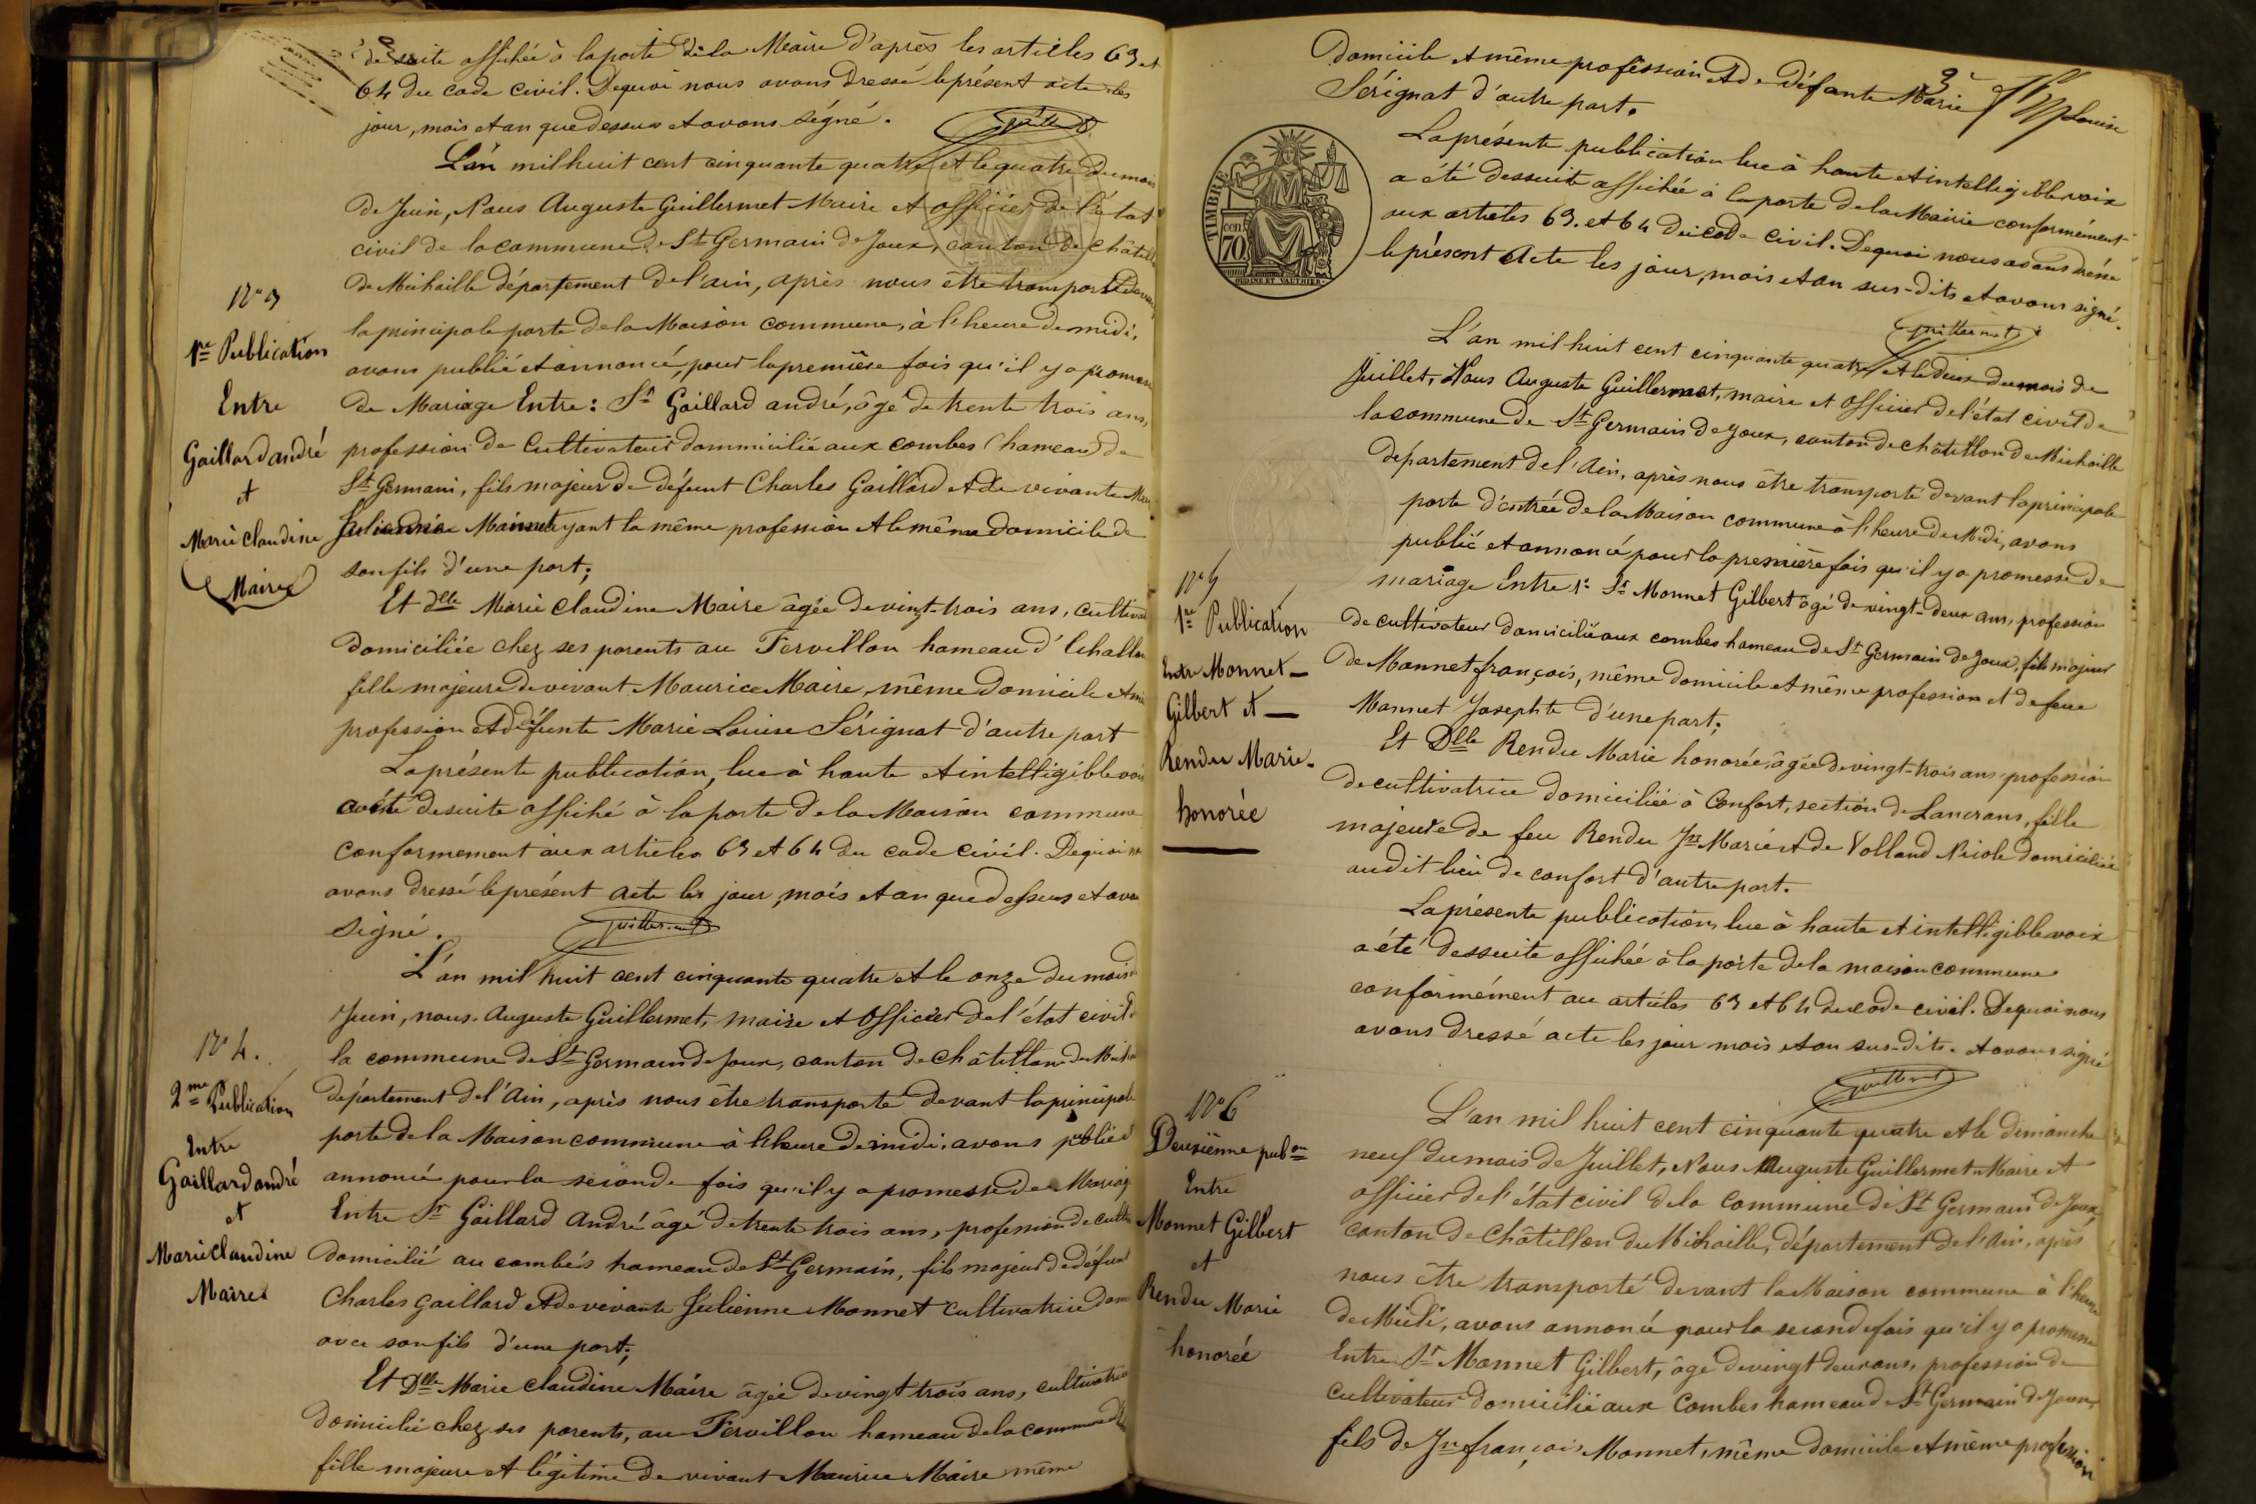 de suite affichée à la porte de la Maire d'après les articles 63 et
64 du code civil. Dequoi nous avons dressé le présent acte les
jour, mois et an que dessus et avons signé.
Guillermet
L'an mil huit cent cinquante quatre et le quatre du mois
de Juin, Nous Auguste Guillermet Maire et officier de l'état
civil de la commune de St Germain de Joux, canton de Châtill
de Michaille département de l'ain, après nous être transporté devant
N° 3
la principale porte de la Maison commune, à l'heure de midi,
1re Publication
avons publié et annoncé, pour la première fois qu'il y a promess
Entre
de Mariage Entre : Sr Gaillard andré, âgé de trente trois ans,
Gaillard andré
profession de Cultivateur dommicilié aux combes hameau de
et
St Germain, fils majeur de défeunt Charles Gaillard et de vivante
Marie Claudine
Julienne Monnet ayant la même profession et le même domicile de
Maire
son fils d'une part ;
Et dlle Marie Claudine Maire âgée de vingt-trois ans, cultiva
domiciliée chez ses parents au Fervillon hameau d'Echallon
fille majeure de vivant Maurice Maire, même domicile et mê
profession et défunte Marie Louise Sérignat d'autre part
La présente publication, lue à haute et intelligible voi
a été desuite affiché à la porte de la Maison commune
conformement aux articles 63 et 64 du code civil. Dequoi
avons dressé le présent acte les jour, mois et an que dessus et avon
signé.
Guillermet
L'an mil huit cent cinquante quatre et le onze du mois
Juin, nous Auguste Guillermet, maire et Officier de l'état civil
N° 4.
la commune de St Germain de Joux, canton de Châtillon de Mich
2me Publication
département de l'Ain, après nous être transporté devant la principale
Entre
porte de la Maison commune à l'heure de midi, avons publié
Gaillard andré
annoncé pour la seconde fois qu'il y a promesse de Mariag
et
Entre Sr Gaillard André âgé de trente trois ans, profession de cultiv
Marie Claudine
domicilié au combés hameau de St Germain, fils majeur de défun
Maire
Charles Gaillard et de vivante Julienne Monnet cultivatrice dom
avec son fils d'une part ;
Et Dlle Marie Claudine Maire âgée de vingt trois ans, cultivatric
domicilié chez ses parents, au Fervillon hameau de la commune d'
fille majeure et légitime de vivant Maurice Maire même
3
domicile et même profession et de défante Marie Louise
Sérignat d'autre part.
La présente publication lue à haute et intelligible voix
a été dessuite affichée à la porte de la Mairie conformément
aux articles 63. et 64 du code civil. Dequoi nous avons dressé
le présent Acte les jour, mois et an sus-dits et avons signé.
TIMBRE
CEN.
70
OUDINE ET VAUTHIER
Guillermet
L'an mil huit cent cinquante quatre et le deux du mois de
Juillet, Nous Auguste Guillermet, maire et Officier de l'état civil de
la commune de St Germain de Joux, canton de Châtillon de Michaille
département de l'Ain, après nous être transporté devant la principale
porte d'entrée de la Maison commune à l'heure de Midi, avons
publié et annoncé pour la première fois qu'il y a promesse de
N° 5
mariage Entre 1° Sr Monnet Gilbert âgé de vingt-deux ans, profession
1re Publication
de cultivateur domicilié aux combes hameau de St Germain de Joux, fils majeur
Entre Monnet
de Monnet françois, même domicile et même profession et de feue
Gilbert et
Monnet Josephte d'une part ;
Rendu Marie-
Et Dlle Rendu Marie honorée, âgée de vingt-trois ans profession
honorée
de cultivatrice domiciliée à Confort, section de Lancrans, fille
majeure de feu Rendu Jn Marie et de Volland Nicole domiciliée
audit lieu de confort d'autre part.
La présente publication, lue à haute et intelligible voix
a été dessuite affichée à la porte de la maison commune
conformément au articles 63 et 64 du code civil. Dequoi nous
avons dressé acte les jour mois et an sus-dits. et avons signé
Guillermet
N° 6
L'an mil huit cent cinquante quatre et le dimanche
Deuxième pubon
neuf du mois de Juillet, Nous Auguste Guillermet Maire et
Entre
officier de l'état civil de la commune de St Germain de Joux,
Monnet Gilbert
canton de Châtillon de Michaille, département de l'Ain, après
et
nous être transporté devant la Maison commune à l'heure
Rendu Marie
de Midi, avons annoncé pour la seconde fois qu'il y a promesse
honorée
Entre Sr Monnet Gilbert, âge de vingt deux ans, profession de
cultivateur domicilié aux Combes hameau de St Germain de Joux,
fils de Jn françois Monnet, même domicile et même profession